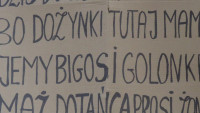 BO DOŻYNKI TUTAJ MAM
JEMY BIGOS I GOLONKI
MĄŻ DO TAŃCA PROSI ŻON